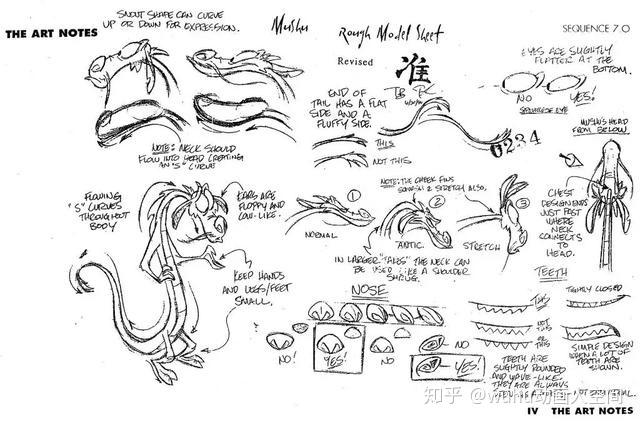 THE ART NOTES
SNOUT SHAPE CAN CURVE
UP OR DOWN FOR EXPRESSION.
Mushu
Rough Model Sheet
Revised
准
SEQUENCE 7.0
EYES ARE SLIGHTLY
FLATTER AT THE
BOTTOM.
NO
YES!
END OF
TAIL HAS A FLAT
SIDE AND A
FLUFFY SIDE.
THIS
NOT THIS
0234
MUSHU'S HEAD
FROM BELOW
NOTE: NECK SHOULD
FLOW INTO HEAD CREATING
AN "S" CURVE
NOTE: THE CHEEK FINS
SQUASH & STRETCH ALSO.
CHEST
DESIGN ENDS
JUST PAST
WHERE
NECK
CONNECTS
TO
HEAD.
FLOWING
"S" CURVES
THROUGHOUT
BODY
EARS ARE
FLOPPY AND
COW-LIKE.
1
NORMAL
2
ANTIC.
3
STRETCH
IN LARGER "TAKES" THE NECK CAN
BE USED LIKE A SHOULDER
SHRUG.
KEEP HANDS
AND LEGS/FEET
SMALL.
NOSE
NO!
YES!
NO
NO
YES!
TEETH
THIS
NOT
THIS
OR THIS
TIGHTLY CLOSED
SIMPLE DESIGN
WHEN A LOT OF
TEETH ARE
SHOWN.
TEETH ARE
SLIGHTLY ROUNDED
AND WAVE-LIKE.
THEY ARE ALWAYS
知乎 @wuhu动画人空间
IV THE ART NOTES